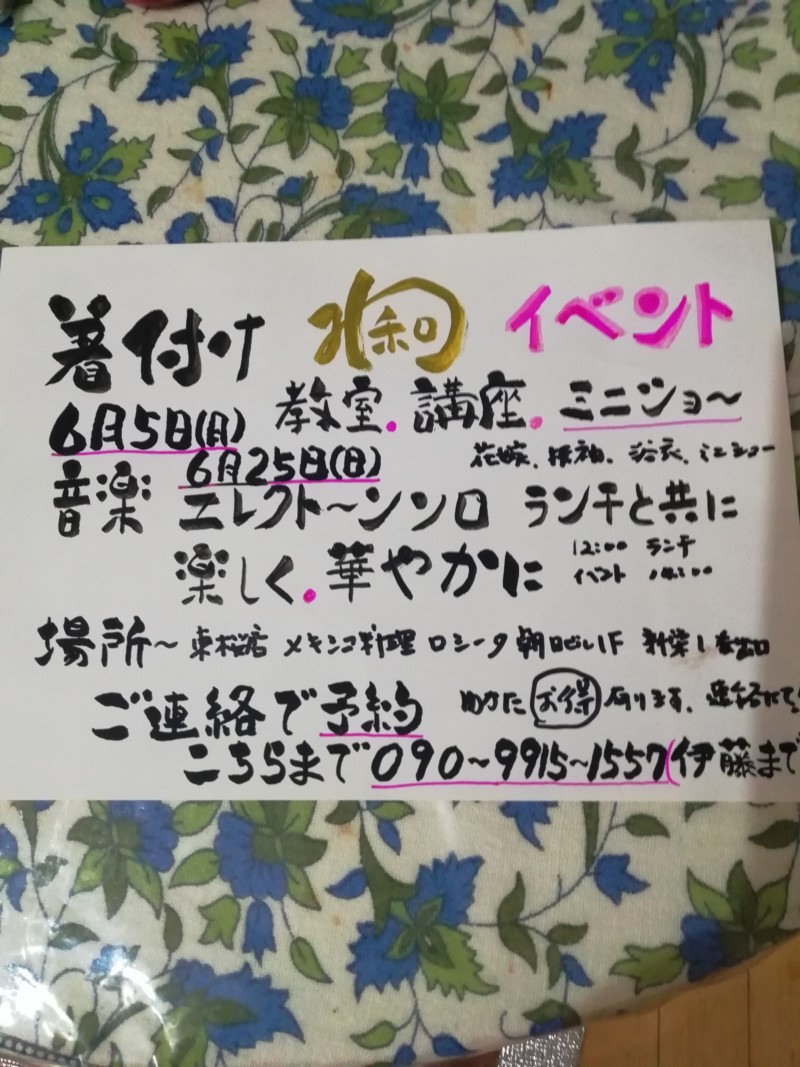 着付け 和 イベント
6月5日(月) 教室.講座.ミニショー
6月25日(日) 花嫁、振袖、浴衣、ミニショー
音楽 エレクト〜ンソロ ランチと共に
楽しく.華やかに 12:00 ランチ
イベント 14:00
場所〜 東桜店 メキシコ料理 ロシータ 朝日ビル1F 新栄1番出口
ご連絡で予約 お得 有ります、
こちらまで 090〜9915〜1557(伊藤まで